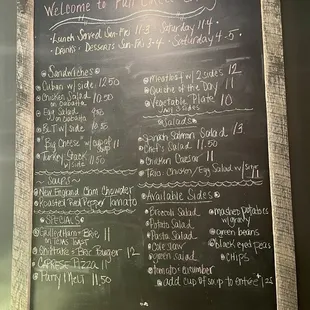 Welcome to Full
Lunch Served Sun-Fri 11-3 Saturday 11-4
Drinks + Desserts Sun-Fri 3-4 Saturday 4-5
Sandwiches
Cuban w/ side 12.50
Chicken Salad 10.50
on Ciabatta
Egg Salad 9.50
on Ciabatta
BLT w/ side 10.50
Big Cheese w/ cup of soup 11
Turkey Stack 11.50
w/ side
Soups
New England Clam Chowder
Roasted Red Pepper Tomato
Specials
Grilled Ham + Brie 11
on Texas toast
Brie Burger 12
Pizza 11
Patty Melt 11.50
Meatloaf w/ 2 sides 12
Quiche of the Day 11
Vegetable Plate 10
w/ 3 sides
Salads
Spinach Salmon Salad 13
Chef's Salad 11.50
Chicken Caesar 11
Trio Chicken/Egg Salad w/ 11
Available Sides
Broccoli Salad
Potato Salad
Pasta Salad
Cole slaw
green salad
tomato + cucumber
mashed potatoes
w/ gravy
green beans
black eyed peas
CHIPS
add cup of soup to entree